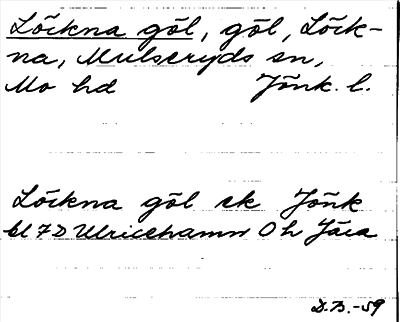 Löckna göl, göl, Löck-
na, Mulseryds sn,
Mo hd Jönk. l.
Löckna göl ek Jönk
bl 7D Ulricehamn O h Jära
D.B.-59